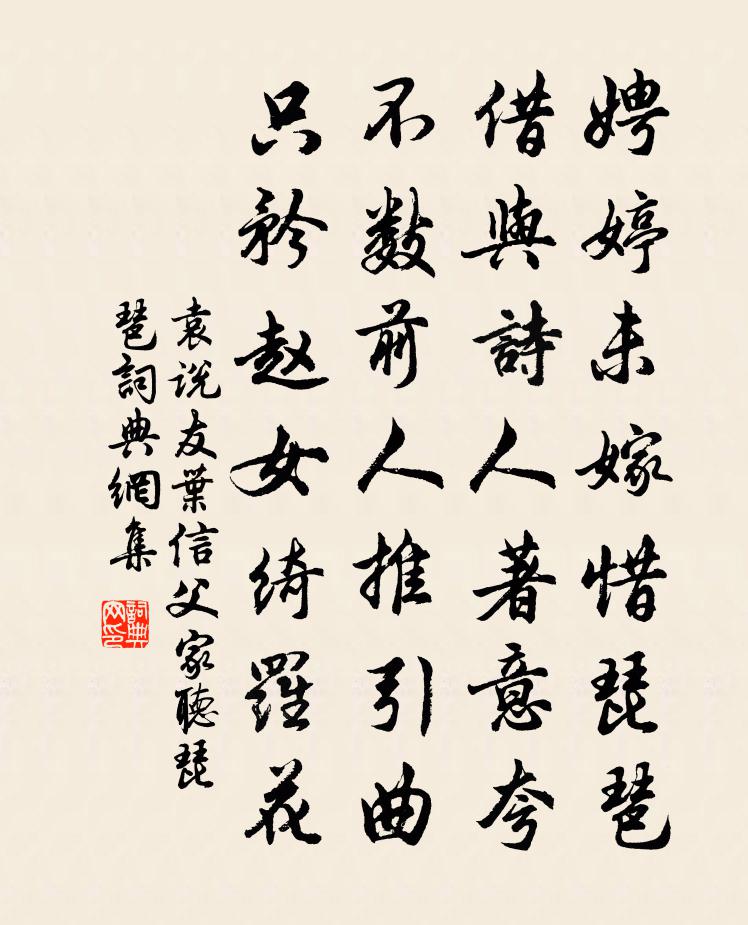 娉婷未嫁惜琵琶
借與詩人著意夸
不數前人推引曲
只矜赵女绮羅花
袁说友葉信父家聽琵
琶詞典網集
詞典
网印